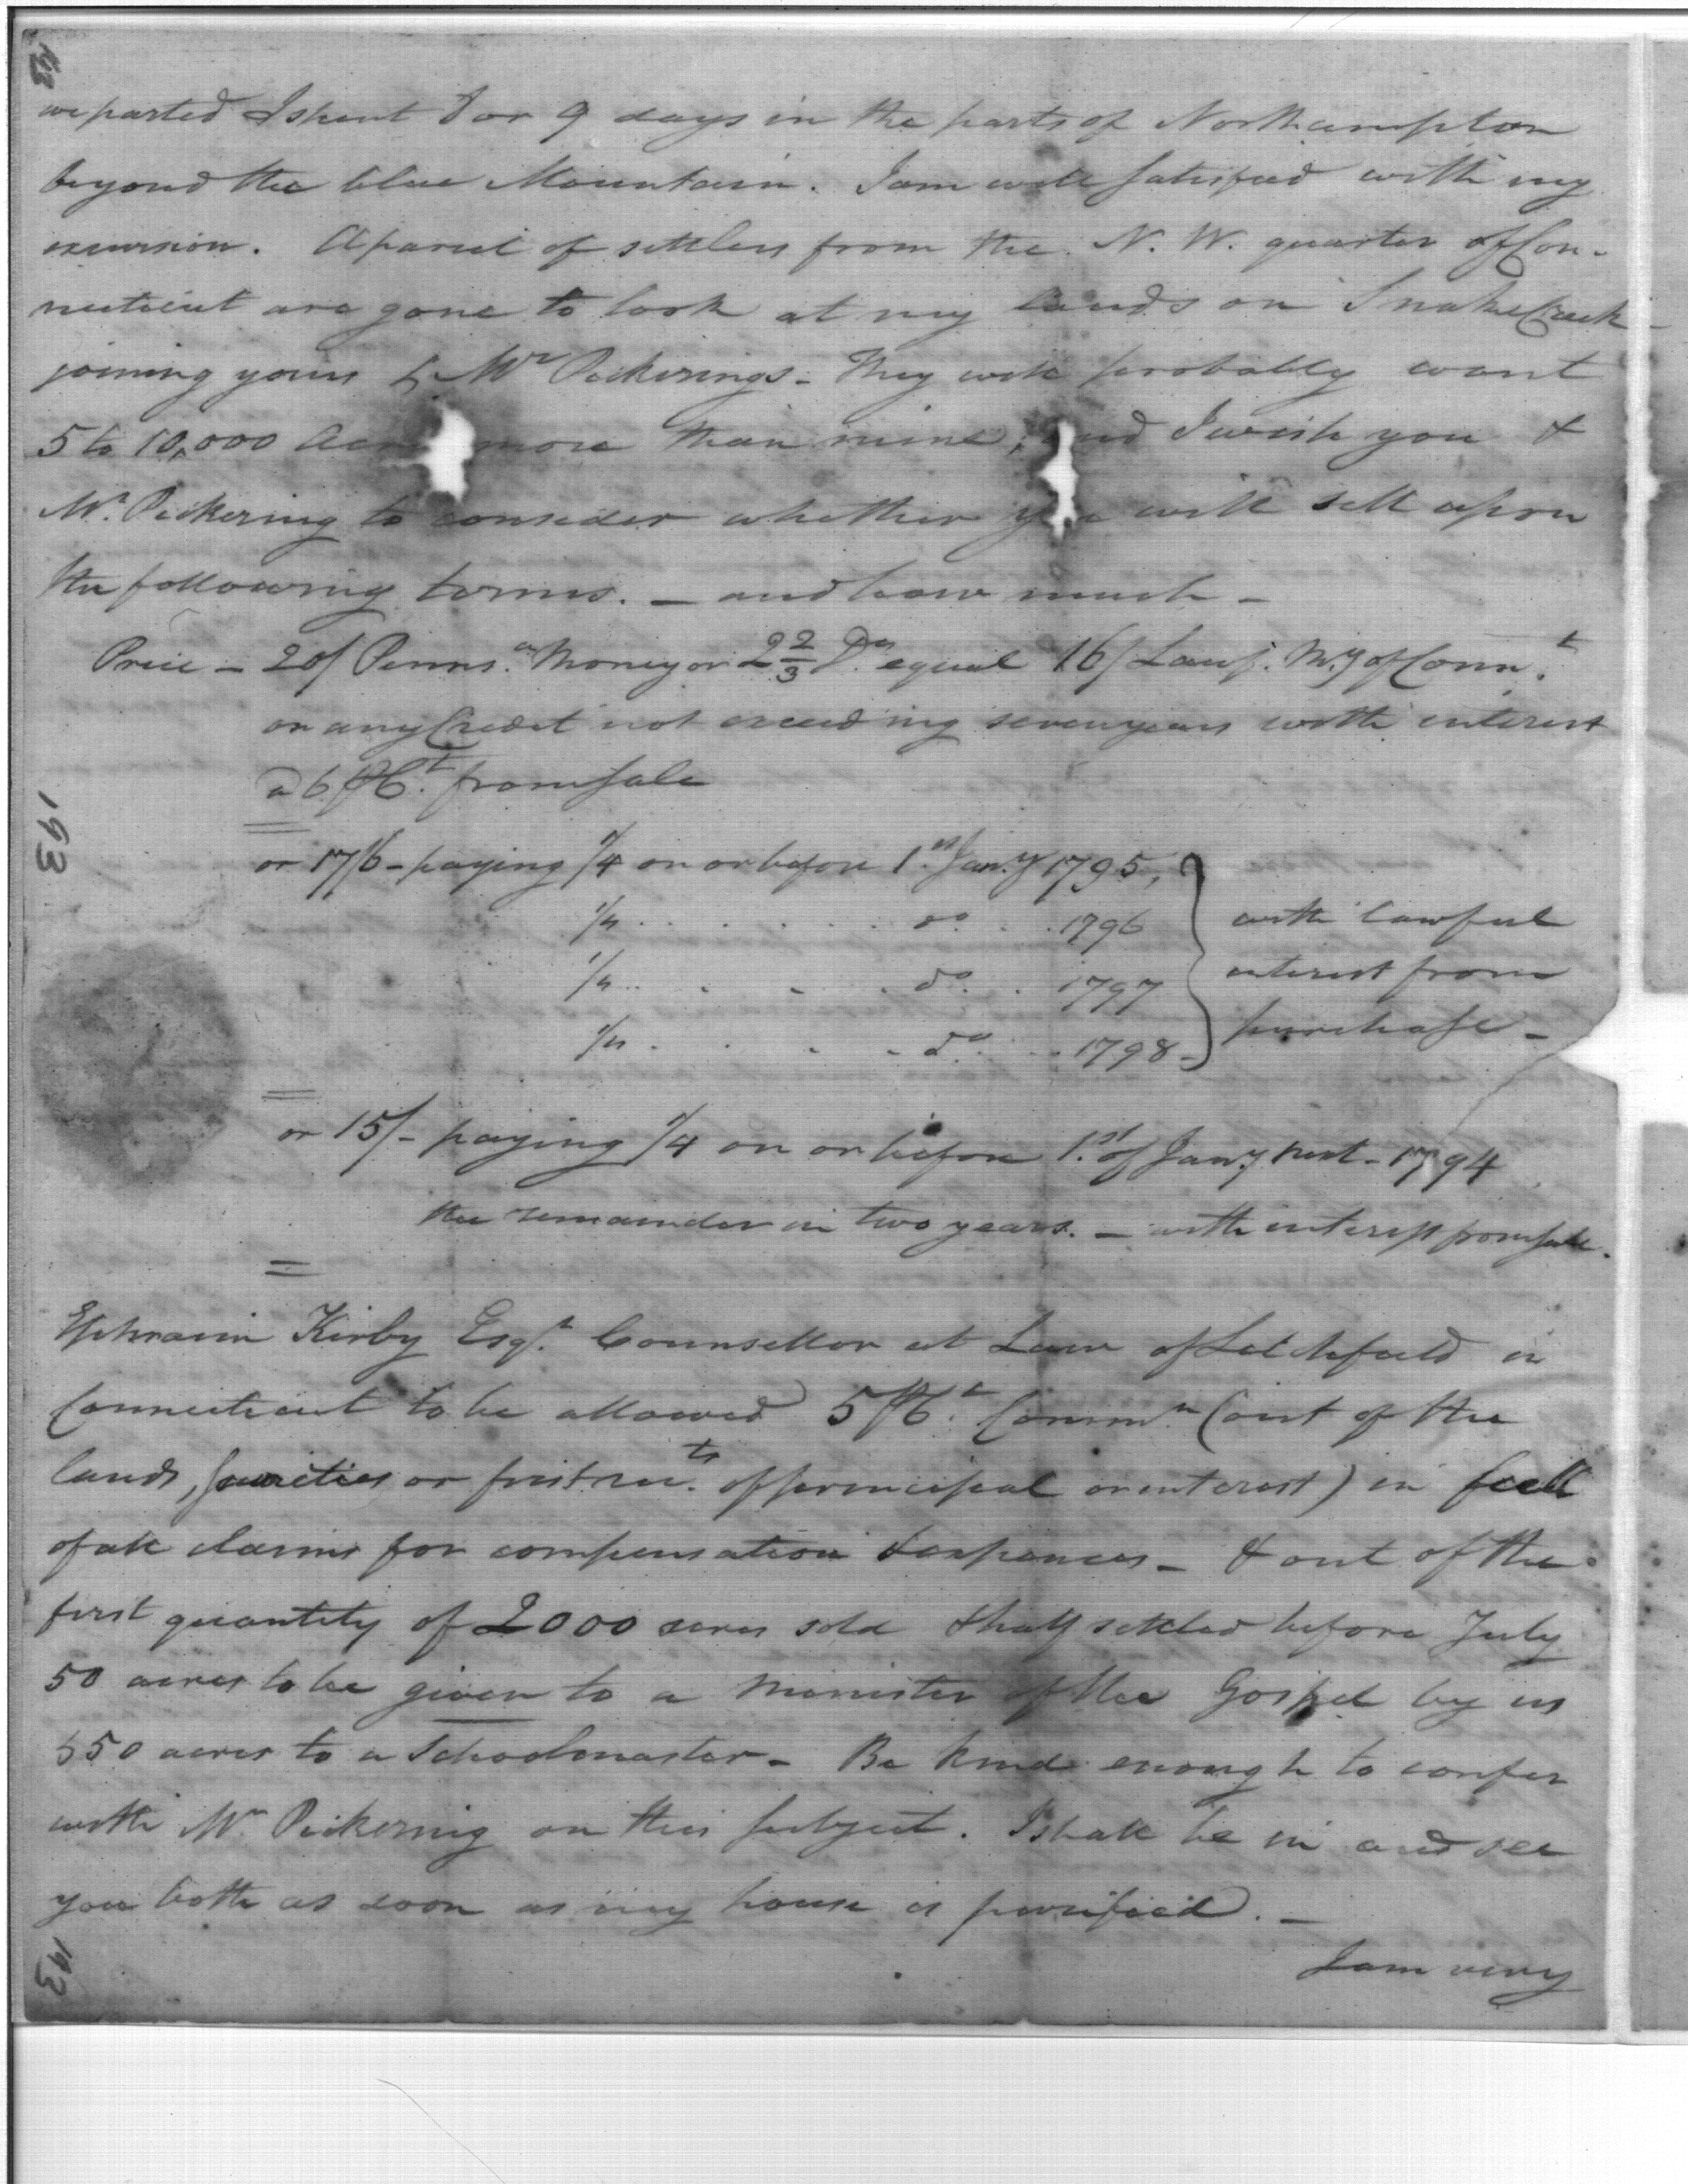 193
we parted I spent 8 or 9 days in the parts of Northampton
beyond the blue Mountain. I am well satisfied with my
excursion. A parcel of settlers from the N. W. quarter of Con-
necticut are gone to look at my lands on Snake Creek
joining yours & Mr Pickerings - They will probably want
5 to 10,000 Acres more than mine; and I wish you &
Mr. Pickering to consider whether you will sell upon
the following terms. - and how much -
Price - 20/ Penns.a Money or 2 2/3 Drs equal 16/ Lawf. My of Conn.t
on any Credit not exceeding seven years with interest
a 6 P Ct. from sale
or 17/6 - paying 1/4 on or before 1st Jany 1795,
1/4 . . . . . do. . . 1796 with lawful
1/4 . . . . do. . 1797 interest from
1/4 . . . . do. . . 1798 - purchase -
193
or 15/- paying 1/4 on or before 1.st of Jany next - 1794
the remainder in two years. - with interest from sale.
Ephraim Kirby Esqr. Counsellor at Law of Litchfield in
Connecticut to be allowed 5 P Ct. Commn (out of the
lands, securities or first ts. of principal or interest) in full
of all claims for compensation & expences - & out of the
first quantity of 2000 acres sold & half settled before July
50 acres to be given to a Minister of the Gospel by us
& 50 acres to a Schoolmaster - Be kind enough to confer
with Mr Pickering on this subject. I shall be in and see
you both as soon as my house is purified. -
I am very
193